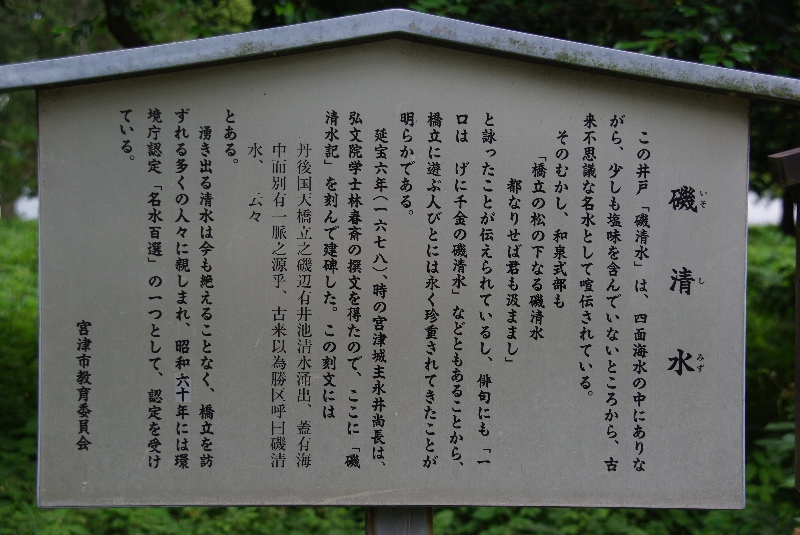 磯清水
いそ し みず
この井戸「磯清水」は、四面海水の中にありな
がら、少しも塩味を含んでいないところから、古
来不思議な名水として喧伝されている。
そのむかし、和泉式部も
「橋立の松の下なる磯清水
都なりせば君も汲ままし」
と詠ったことが伝えられているし、俳句にも「一
口は げに千金の磯清水」などともあることから、
橋立に遊ぶ人びとには永く珍重されてきたことが
明らかである。
延宝六年(一六七八)、時の宮津城主永井尚長は、
弘文院学士林春斎の撰文を得たので、ここに「磯
清水記」を刻んで建碑した。この刻文には
丹後国天橋立之磯辺有井池清水涌出、蓋有海
中而別有一脈之源乎、古来以為勝区呼曰磯清
水、 云々
とある。
湧き出る清水は今も絶えることなく、橋立を訪
ずれる多くの人々に親しまれ、昭和六十年には環
境庁認定「名水百選」の一つとして、認定を受け
ている。
宮津市教育委員会